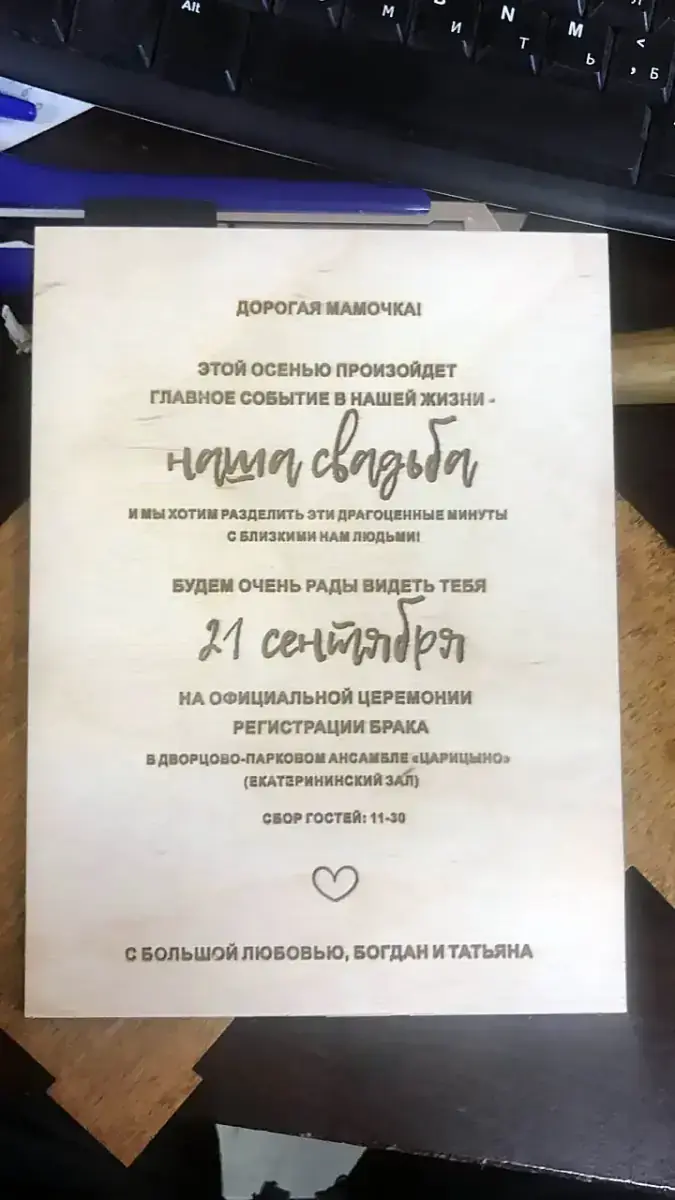 Alt
М
И
N
Т
M
Ь
<
, Б
ДОРОГАЯ МАМОЧКА!
ЭТОЙ ОСЕНЬЮ ПРОИЗОЙДЕТ
ГЛАВНОЕ СОБЫТИЕ В НАШЕЙ ЖИЗНИ -
наша свадьба
И МЫ ХОТИМ РАЗДЕЛИТЬ ЭТИ ДРАГОЦЕННЫЕ МИНУТЫ
С БЛИЗКИМИ НАМ ЛЮДЬМИ!
БУДЕМ ОЧЕНЬ РАДЫ ВИДЕТЬ ТЕБЯ
21 сентября
НА ОФИЦИАЛЬНОЙ ЦЕРЕМОНИИ
РЕГИСТРАЦИИ БРАКА
В ДВОРЦОВО-ПАРКОВОМ АНСАМБЛЕ «ЦАРИЦЫНО»
(ЕКАТЕРИНИНСКИЙ ЗАЛ)
СБОР ГОСТЕЙ: 11-30
С БОЛЬШОЙ ЛЮБОВЬЮ, БОГДАН И ТАТЬЯНА